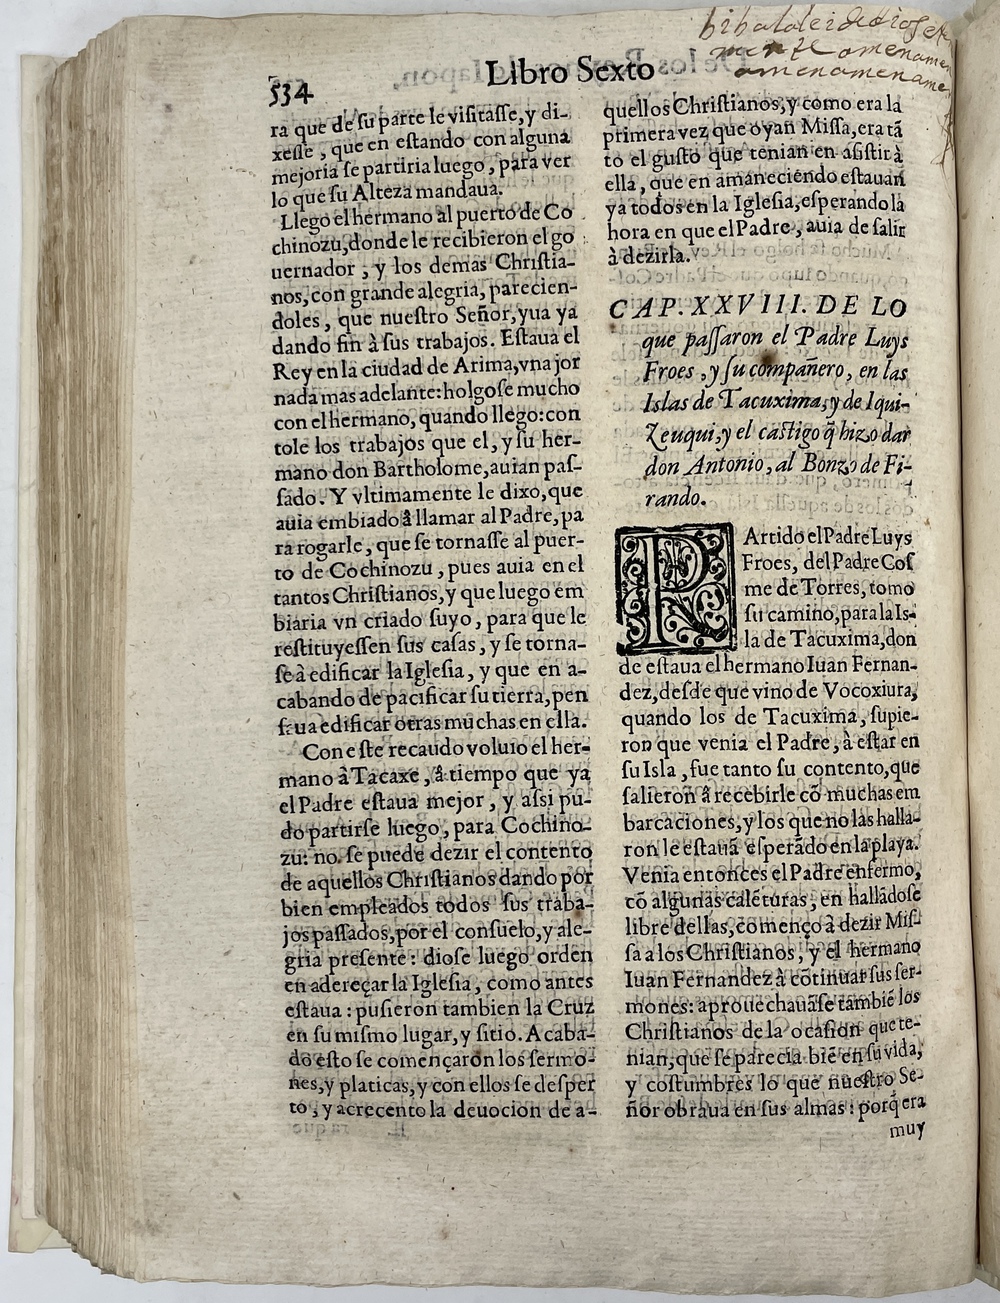 biba la lei de dios
mente amenamen
amenamename
534
Libro Sexto
ra que de su parte le visitasse, y di-
xesse, que en estando con alguna
mejoria se partiria luego, para ver
lo que su Alteza mandaua.
Llego el hermano al puerto de Co
chinozu, donde le recibieron el go
uernador, y los demas Christia-
nos, con grande alegria, parecien-
doles, que nuestro Señor, yua ya
dando fin à sus trabajos. Estaua el
Rey en la ciudad de Arima, vna jor
nada mas adelante: holgose mucho
con el hermano, quando llego: con
tole los trabajos que el, y su her-
mano don Bartholome, auian pas-
sado. Y vltimamente le dixo, que
auia embiado â llamar al Padre, pa
ra rogarle, que se tornasse al puer-
to de Cochinozu, pues auia en el
tantos Christianos, y que luego em
biaria vn criado suyo, para que le
restituyessen sus casas, y se torna-
se à edificar la Iglesia, y que en a-
cabando de pacificar su tierra, pen
saua edificar otras muchas en ella.
Con este recaudo voluio el her-
mano à Tacaxe, â tiempo que ya
el Padre estaua mejor, y assi pu-
do partirse luego, para Cochino-
zu: no se puede dezir el contento
de aquellos Christianos dando por
bien empleados todos sus traba-
jos passados, por el consuelo, y ale-
gria presente: diose luego orden
en adereçar la Iglesia, como antes
estaua: pusieron tambien la Cruz
en su mismo lugar, y sitio. Acaba-
do esto se començaron los sermo-
nes, y platicas, y con ellos se desper
to, y acrecento la deuocion de a-
quellos Christianos, y como era la
primera vez que oyan Missa, era tã
to el gusto que tenian en asistir à
ella, que en amaneciendo estauan
ya todos en la Iglesia, esperando la
hora en que el Padre, auia de salir
à dezirla.
CAP. XXVIII. DE LO
que passaron el Padre Luys
Froes, y su compañero, en las
Islas de Tacuxima, y de Iqui-
zeuqui, y el castigo q̃ hizo dar
don Antonio, al Bonzo de Fi-
rando.
PArtido el Padre Luys
Froes, del Padre Cos
me de Torres, tomo
su camino, para la Is-
la de Tacuxima, don
de estaua el hermano Iuan Fernan-
dez, desde que vino de Vocoxiura,
quando los de Tacuxima, supie-
ron que venia el Padre, à estar en
su Isla, fue tanto su contento, que
salieron â recebirle cõ muchas em
barcaciones, y los que no las halla-
ron le estauã esperãdo en la playa.
Venia entonces el Padre enfermo,
cõ algunas calẽturas, en hallãdose
libre dellas, començo à dezir Mis-
sa a los Christianos, y el hermano
Iuan Fernandez à cõtinuar sus ser-
mones: aprouechauãse tambiẽ los
Christianos de la ocasion que te-
nian, que se parecia biẽ en su vida,
y costumbres lo que nuestro Se-
ñor obraua en sus almas: porq̃ era
muy